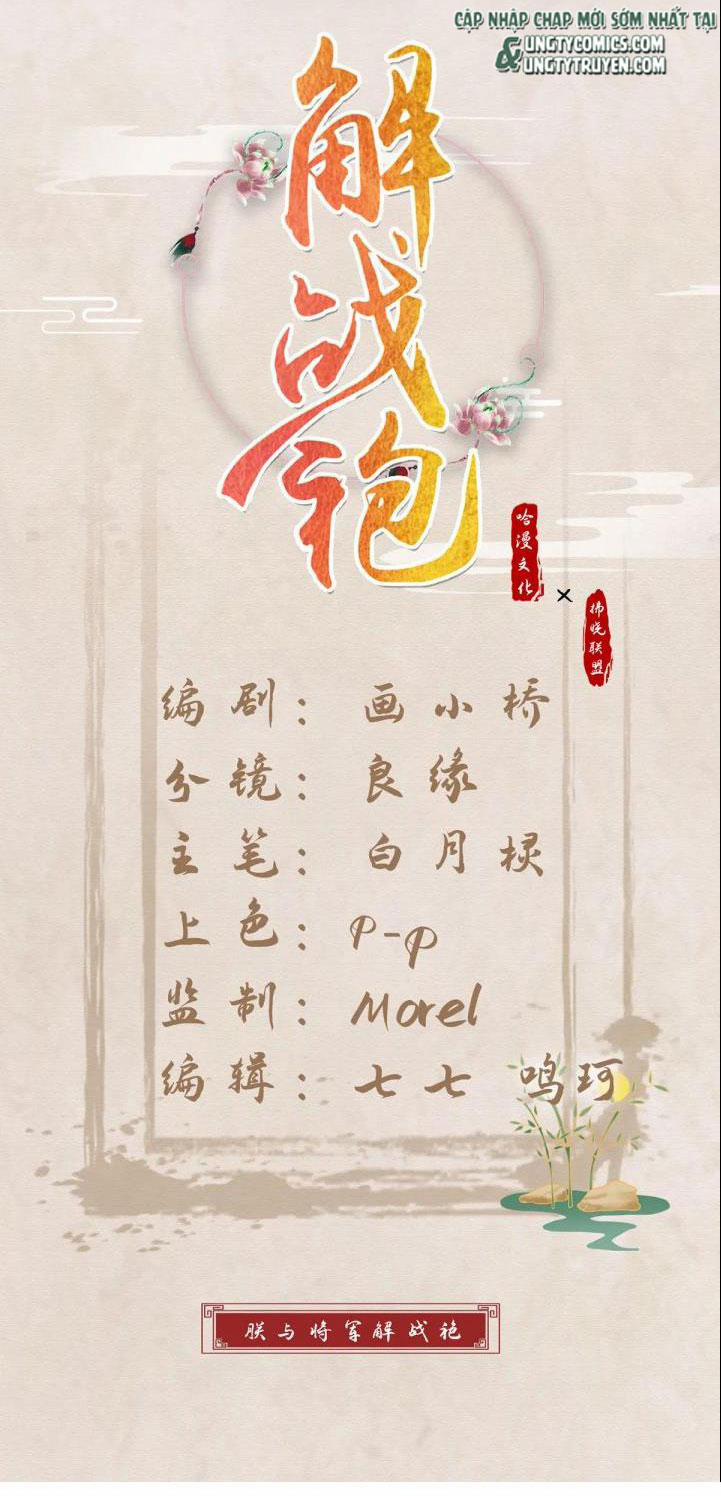 CẬP NHẬP CHAP MỚI SỚM NHẤT TẠI
UNGTYCOMICS.COM
& UNGTYTRUYEN.COM
解战袍
哈漫文化
×
拂晓联盟
编剧：画小桥
分镜：良缘
主笔：白月棂
上色：P-P
监制：Morel
编辑：七七 鸣珂
朕与将军解战袍